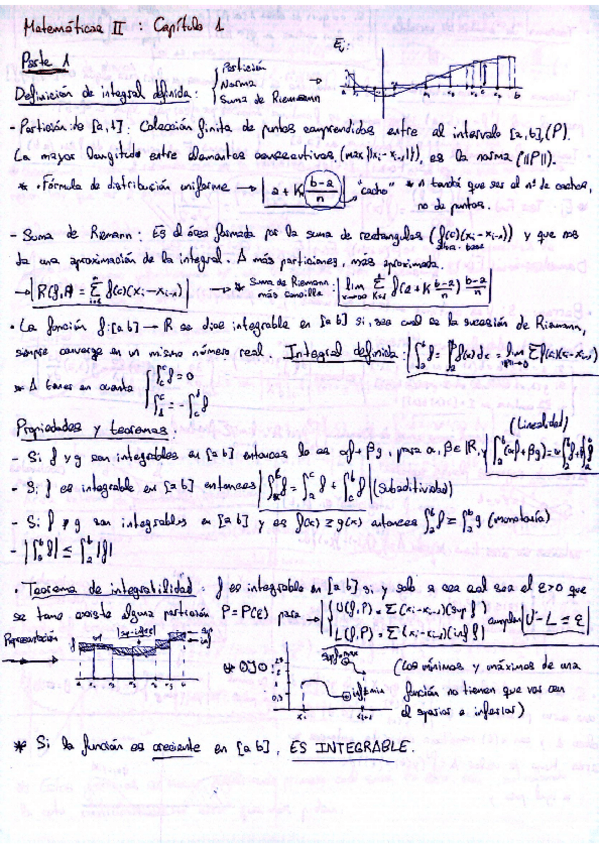 Matemáticas II : Capítulo 1
Parte 1
Ej:
Definición de integral definida: { Partición
Norma
Suma de Riemann
- Partición de [a,b]: Colección finita de puntos comprendidos entre el intervalo [a,b], (P).
La mayor longitud entre elementos consecutivos, (max{|xi - xi-1|}), es la norma (||P||).
* · Fórmula de distribución uniforme → | a + K (b-a)/n | "cacho" * n tendrá que ser el nº de cachos,
no de puntos.
- Suma de Riemann: Es el área formada por la suma de rectángulos (f(c)(xi - xi-1)) y que nos
altura · base
da una aproximación de la integral. A más particiones, más aproximada.
→ | R(f,P) = Σ f(c)(xi - xi-1) | → * Suma de Riemann más sencilla: | lim Σ f(a + K (b-a)/n) (b-a)/n |
· La función f:[a b] → R se dice integrable en [a b] si, sea cual sea la sucesión de Riemann,
siempre converge en un mismo número real. Integral definida: | ∫ f = ∫ f(x) dx = lim Σ f(c)(xi - xi-1) |
* A tener en cuenta { ∫ f = 0
∫ = - ∫ f
Propiedades y teoremas:
(Linealidad)
- Si f y g son integrables en [a b] entonces lo es αf + βg, para α, β ∈ R, y | ∫ (αf + βg) = α∫ f + β∫ g |
- Si f es integrable en [a b] entonces | ∫ f = ∫ f + ∫ f | (Subaditividad)
- Si f y g son integrables en [a b] y es f(x) ≥ g(x) entonces ∫ f ≥ ∫ g (monotonía)
- |∫ f| ≤ ∫ |f|
· Teorema de integrabilidad: f es integrable en [a b] si, y solo si sea cual sea el ε>0 que
se tome existe alguna partición P = P(ε) para → | { U(f,P) = Σ(xi - xi-1)(sup f)
L(f,P) = Σ(xi - xi-1)(inf f) cumplan | U - L ≤ ε |
Representación
sup
inf
* OJO:
sup f
inf
(Los mínimos y máximos de una
función no tienen que ver con
el superior e inferior)
* Si la función es creciente en [a b], ES INTEGRABLE.